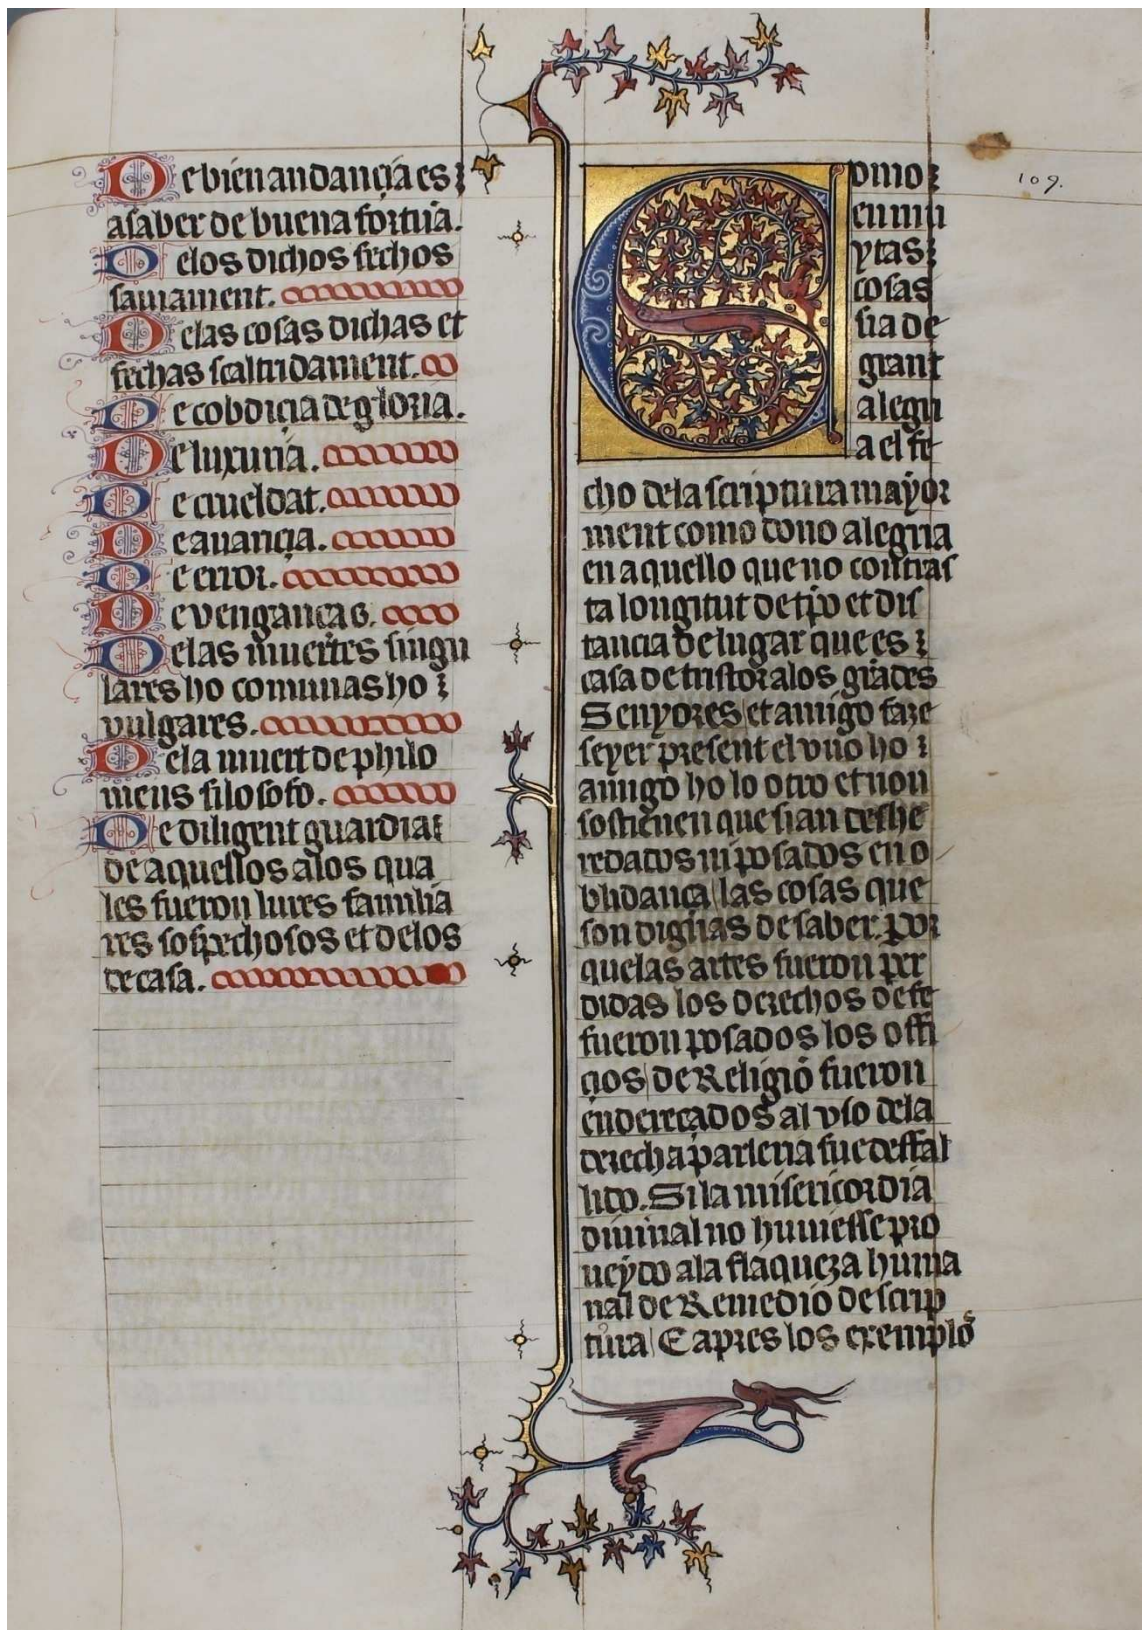 De bien andança es
asaber de buena fortuna.
Delos dichos fechos
sauiament.
Delas cosas dichas et
fechas scaltridament.
De cobdiçia de gloria.
De luxuria.
De crueldat.
De auariçia.
De error.
De vengancas.
Delas muertes singu
lares ho comunas ho
vulgares.
Dela muert de philo
menus filosofo.
De diligent guardia
de aquellos alos qua
les fueron lures familia
res sospechosos et delos
de casa.
109.
Como
en mu
ytas
cosas
sia de
grant
alegri
a el fe
cho dela scriptura mayor
ment como dono alegria
en aquello que no contras
ta longitut de tp̄o et dis
tancia de lugar que es
casa de tristor alos grādes
Senyores et amigo faze
seyer present el vno ho
amigo ho lo otro et non
sostienen que sian deshe
redados ni posados en o
blidança las cosas que
son dignas de saber. por
quelas artes fueron per
didas los derechos de fe
fueron posados los offi
çios de Religiō fueron
endereçados al vso dela
derecha parleria fue deffal
lido. Si la misericordia
diuinal no huuiesse pro
ueydo ala flaqueza huma
nal de Remedio de scrip
tura E apres los exemplos